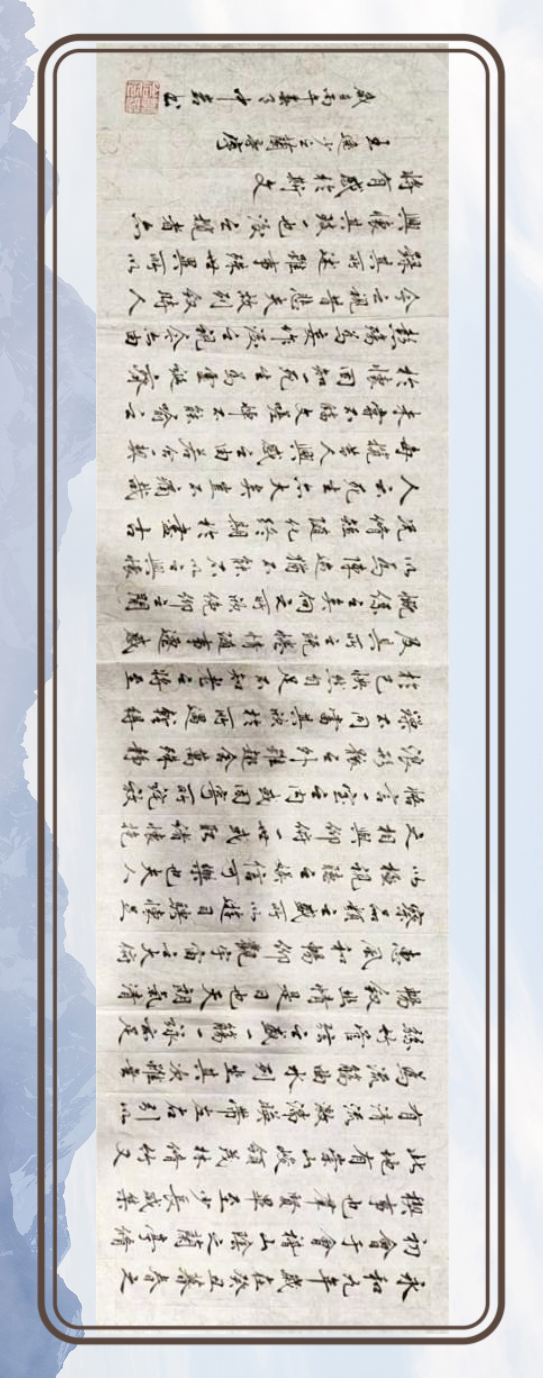 永和九年歲在癸丑暮春之
初會于會稽山陰之蘭亭脩
禊事也羣賢畢至少長咸集
此地有崇山峻領茂林脩竹又
有清流激湍暎帶左右引以
為流觴曲水列坐其次雖無
絲竹管弦之盛一觴一詠亦足
暢叙幽情是日也天朗氣清
惠風和暢仰觀宇宙之大俯
察品類之盛所以遊目騁懷足
以極視聽之娛信可樂也夫人
之相與俯仰一世或取諸懷抱
悟言一室之內或因寄所託放
浪形骸之外雖趣舍萬殊靜
躁不同當其欣於所遇暫得
於己怏然自足不知老之將至
及其所之既惓情隨事遷感
慨係之矣向之所欣俛仰之間
以為陳迹猶不能不以之興懷
況脩短隨化終期於盡古
人云死生亦大矣豈不痛哉
每攬昔人興感之由若合契
未嘗不臨文嗟悼不能喻之
於懷固知一死生為虛誕齊
彭殤為妄作後之視今亦由
今之視昔悲夫故列叙時人
錄其所述雖事殊世異所以
興懷其致一也後之攬者亦
將有感於斯文
王逸少之蘭亭序
歲在丙午春月中書